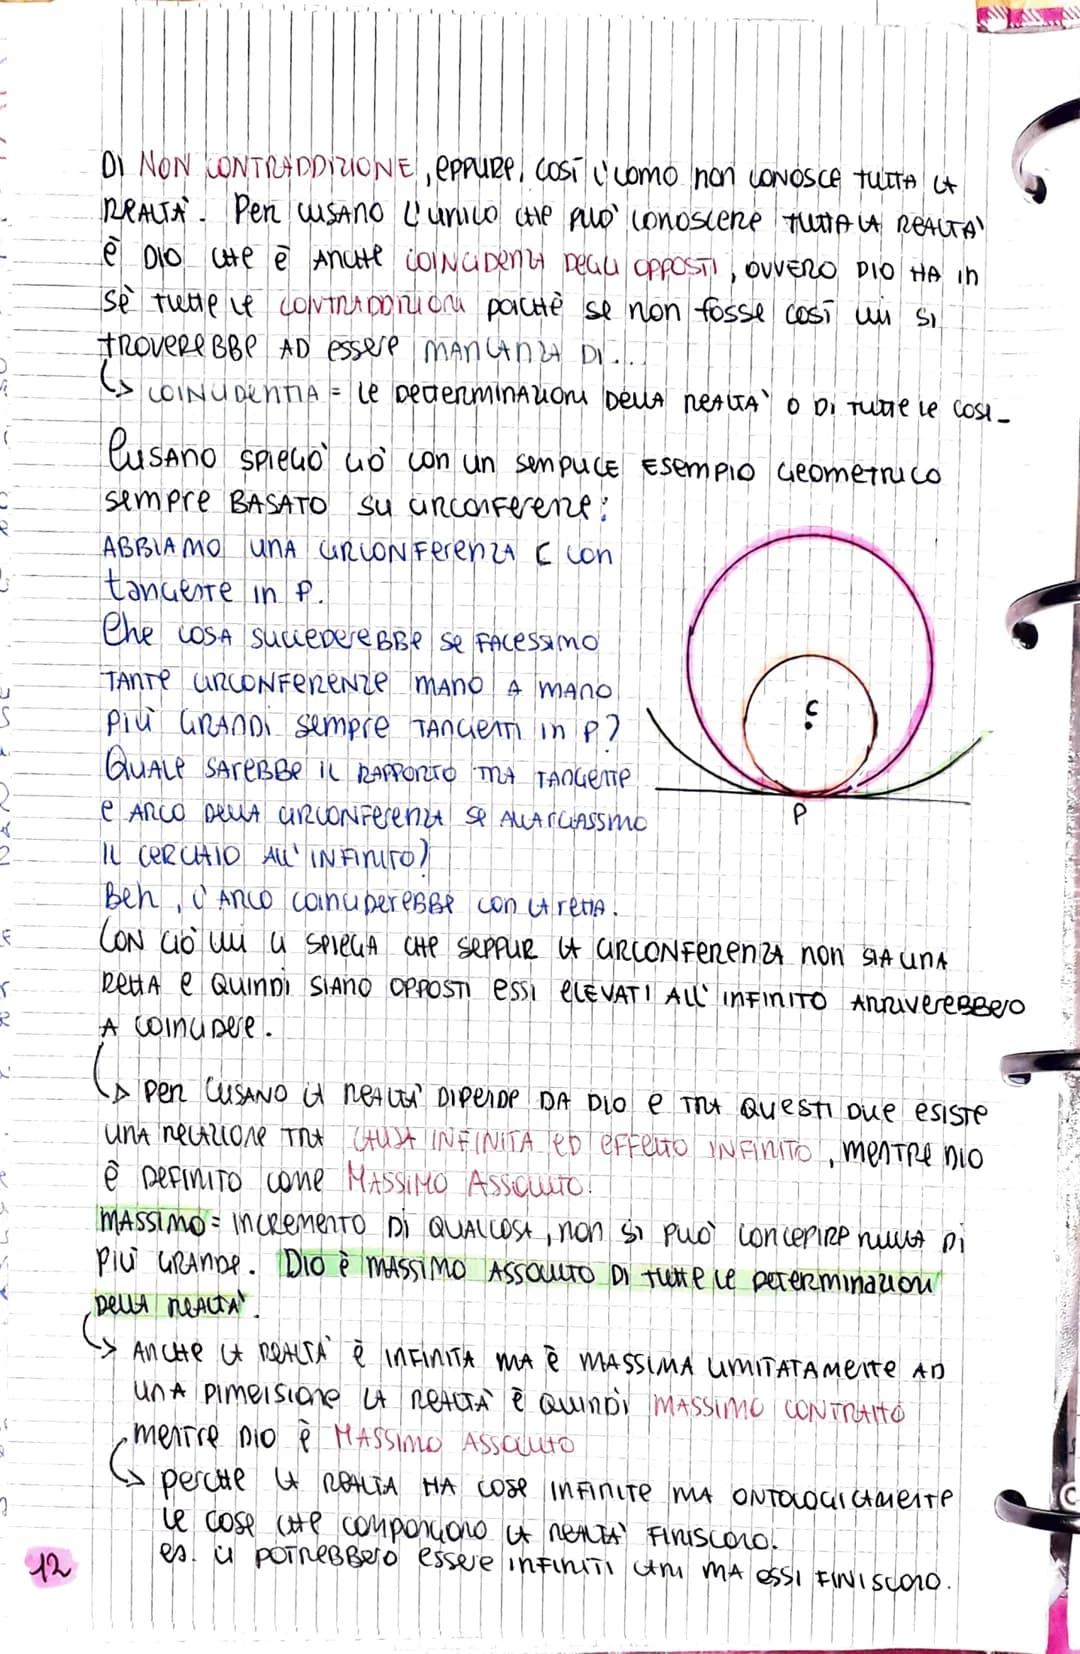 DI NON CONTRADDIZIONE, EPPURE, COSÌ L'UOMO NON CONOSCE TUTTA LA
REALTÀ. PER CUSANO L'UNICO CHE PUÒ CONOSCERE TUTTA LA REALTÀ
È DIO CHE È ANCHE COINCIDENZA DEGLI OPPOSTI, OVVERO DIO HA IN
SÈ TUTTE LE CONTRADDIZIONI POICHÈ SE NON FOSSE COSÌ LUI SI
TROVEREBBE AD ESSERE MANCANZA DI...
↳ COINCIDENTIA = LE DETERMINAZIONI DELLA REALTÀ O DI TUTTE LE COSE_
CUSANO SPIEGÒ CIÒ CON UN SEMPLICE ESEMPIO GEOMETRICO
SEMPRE BASATO SU CIRCONFERENZE:
ABBIAMO UNA CIRCONFERENZA C CON
TANGENTE IN P.
CHE COSA SUCCEDEREBBE SE FACESSIMO
TANTE CIRCONFERENZE MANO A MANO
PIÙ GRANDI SEMPRE TANGENTI IN P?
QUALE SAREBBE IL RAPPORTO TRA TANGENTE
E ARCO DELLA CIRCONFERENZA SE ALLARGASSIMO
IL CERCHIO ALL'INFINITO?
BEH, L'ARCO COINCIDEREBBE CON LA RETTA.
C
P
CON CIÒ LUI CI SPIEGA CHE SEPPUR LA CIRCONFERENZA NON SIA UNA
RETTA E QUINDI SIANO OPPOSTI ESSI ELEVATI ALL'INFINITO ARRIVEREBBERO
A COINCIDERE.
↳ PER CUSANO LA REALTÀ DIPENDE DA DIO E TRA QUESTI DUE ESISTE
UNA RELAZIONE TRA CAUSA INFINITA ED EFFETTO INFINITO, MENTRE DIO
È DEFINITO COME MASSIMO ASSOLUTO.
MASSIMO = INCREMENTO DI QUALCOSA, NON SI PUÒ CONCEPIRE NULLA DI
PIÙ GRANDE. DIO È MASSIMO ASSOLUTO DI TUTTE LE DETERMINAZIONI
DELLA REALTÀ.
↳ ANCHE LA REALTÀ È INFINITA MA È MASSIMA LIMITATAMENTE AD
UNA DIMENSIONE LA REALTÀ È QUINDI MASSIMO CONTRATTO
MENTRE DIO È MASSIMO ASSOLUTO
↳ PERCHÈ LA REALTÀ HA COSE INFINITE MA ONTOLOGICAMENTE
LE COSE CHE COMPONGONO LA REALTÀ FINISCONO.
ES. CI POTREBBERO ESSERE INFINITI CANI MA ESSI FINISCONO.
12